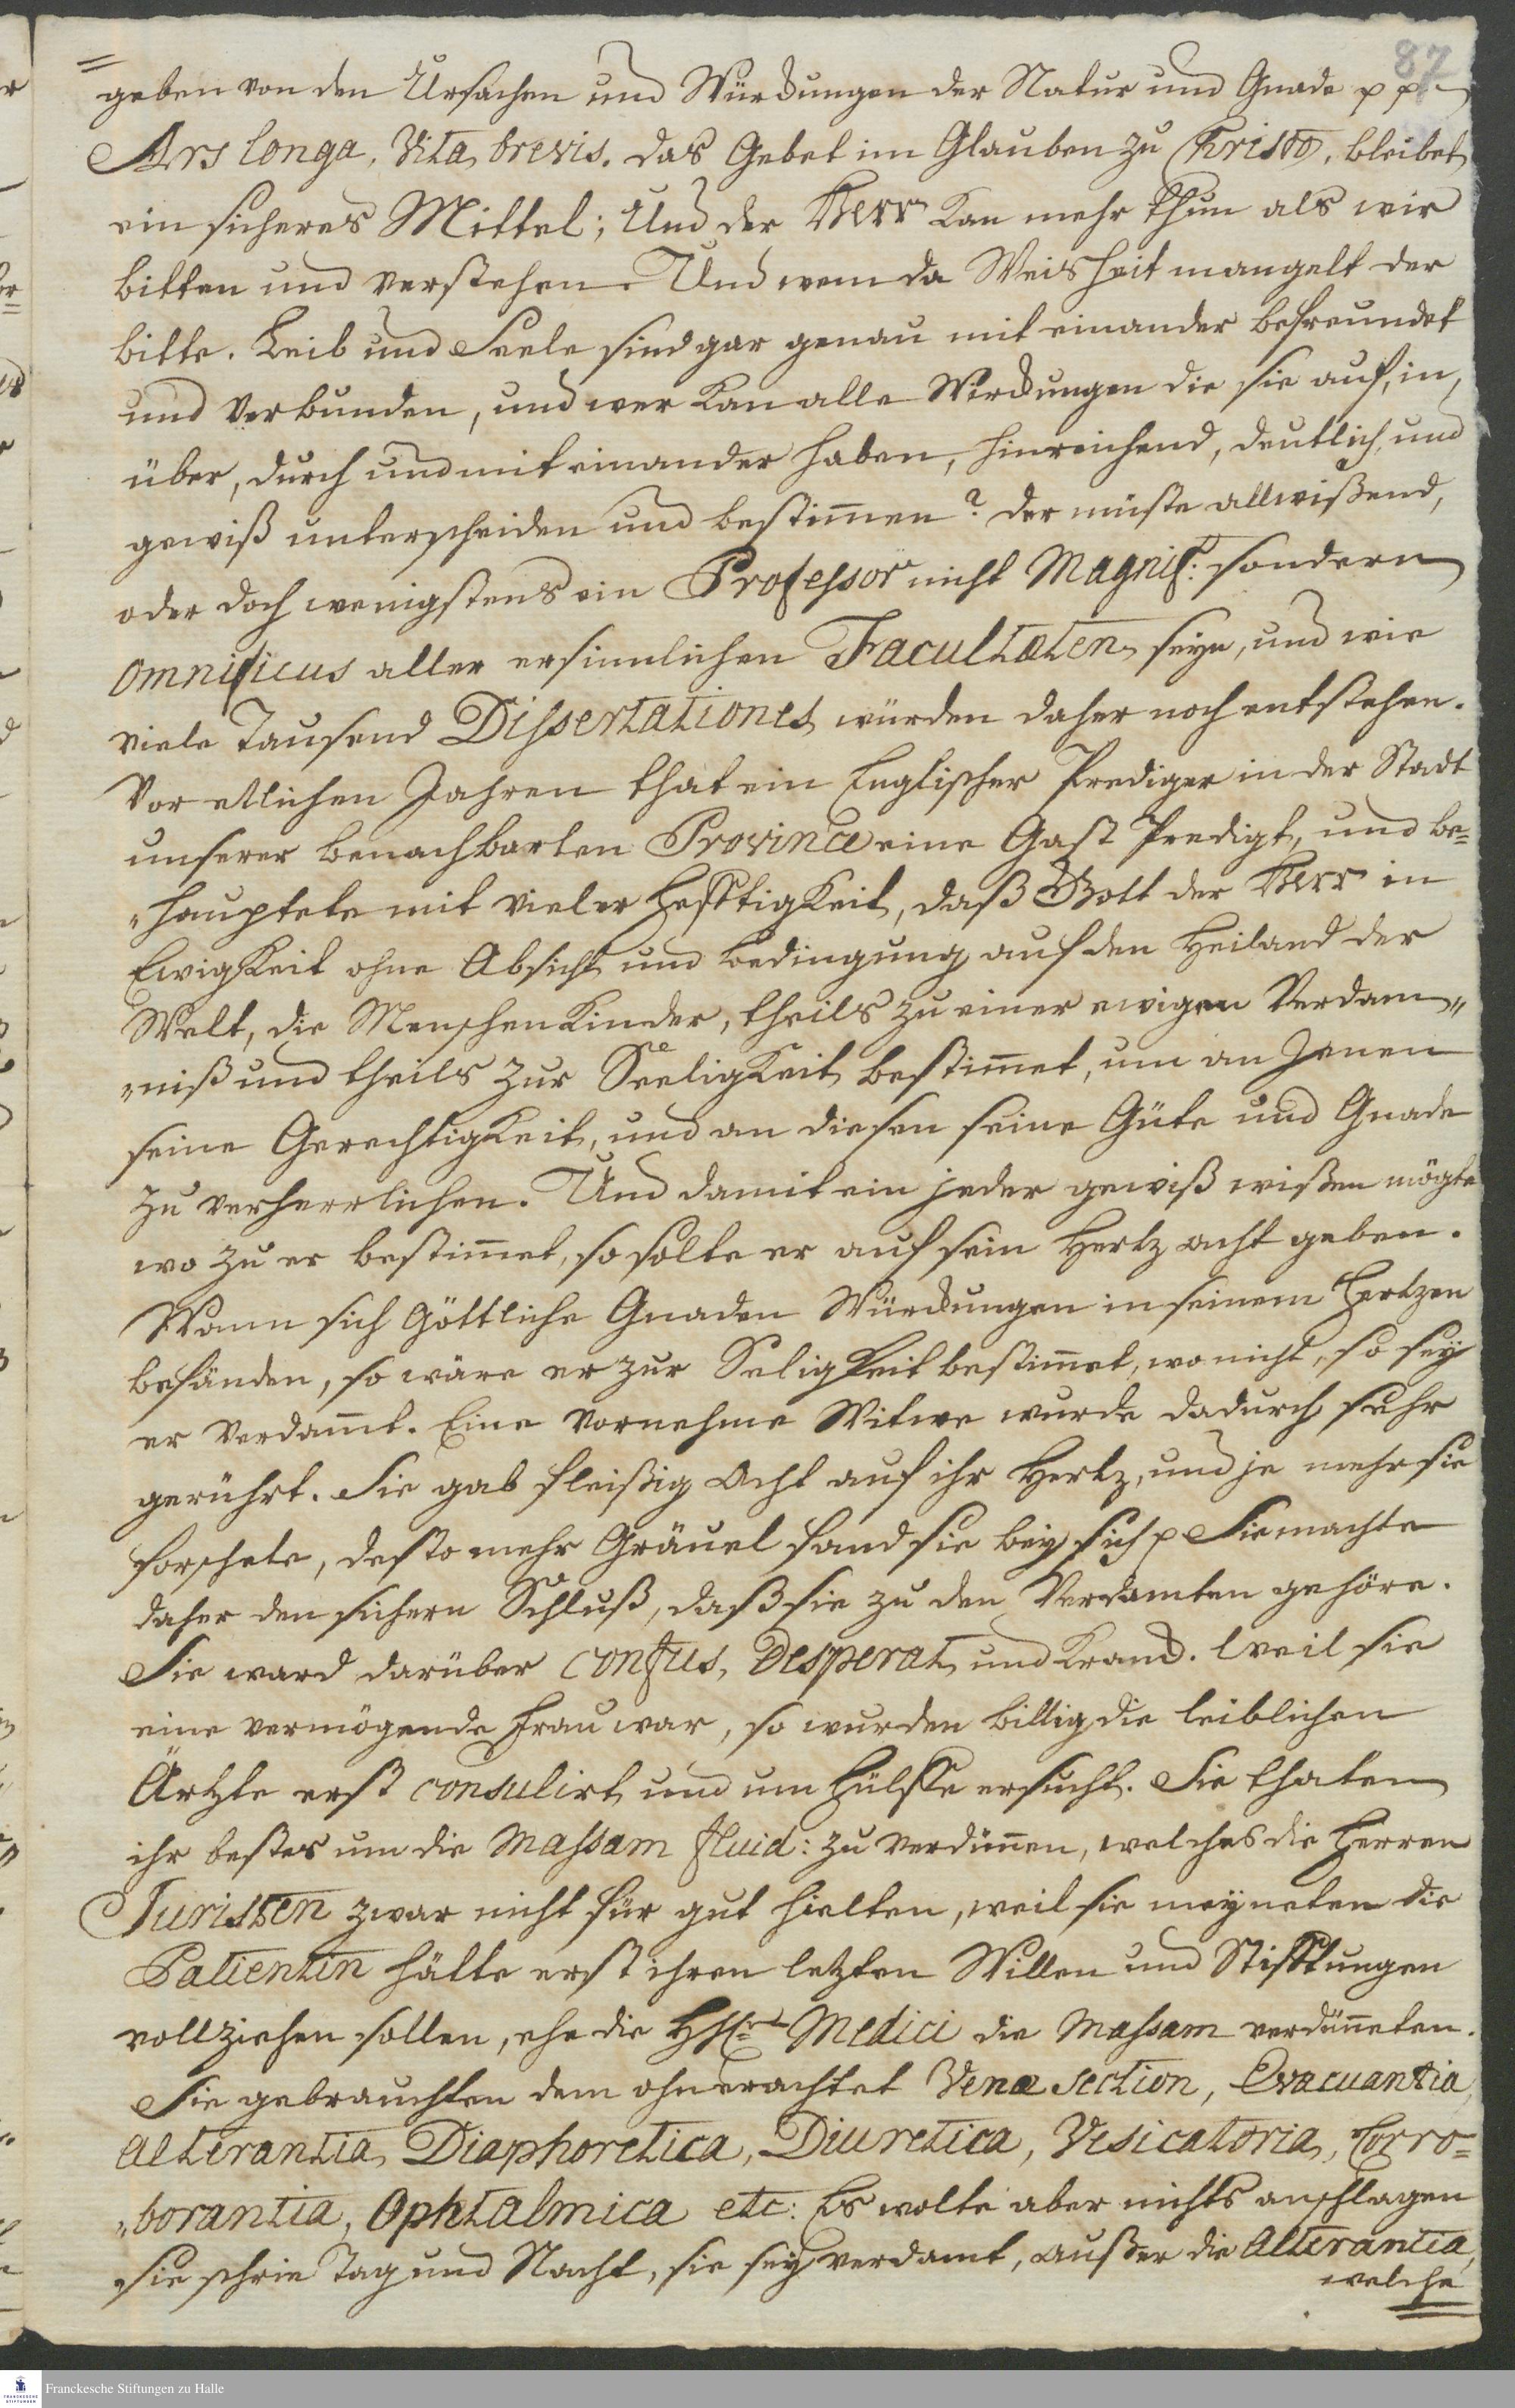 87
geben von den Ursachen und Würckungen der Natur und Gnade p p
Ars longa, Vita brevis. das Gebet im Glauben zu Christo, bleibet
ein sicheres Mittel; Und der Herr kan mehr thun als wir
bitten und verstehen. Und wem da Weisheit mangelt der
bitte. Leib und Seele sind gar genau mit einander befreundet
und verbunden, und wer kan alle Wirckungen die sie auf, in,
über, durch und mit einander haben, hinreichend, deutlich, und
gewiß unterscheiden und bestim̄en? der müste allwißend,
oder doch wenigstens ein Professor nicht Magnif: sondern
omnificus aller ersinnlichen Facultæten seyn, und wie
viele Tausend Dissertationes würden daher noch entstehen.
Vor etlichen Jahren that ein Englischer Prediger in der Stadt
unserer benachbarten Province eine Gast Predigt, und be=
"hauptete mit vieler Hefftigkeit, daß Gott der Herr in
Ewigkeit ohne Absicht und bedingung auf den Heiland der
Welt, die Menschen Kinder, theils zu einer ewigen Verdam"
"niß und theils zur Seeligkeit bestim̄et, um an Jenen
seine Gerechtigkeit, und an diesen seine Güte und Gnade
zu verherrlichen. Und damit ein jeder gewiß wißen mögte
wo zu er bestim̄et, so solte er auf sein Hertz acht geben.
Wann sich Göttliche Gnaden Würckungen in seinem Hertzen
befänden, so wäre er zur Seligkeit bestim̄et, wo nicht, so sey
er verdam̄t. Eine vornehme Witwe wurde dadurch sehr
gerührt. Sie gab fleißig Acht auf ihr Hertz, und je mehr sie
forschete, desto mehr Gräuel fand sie bey sich p Sie machte
daher den sichern Schluß, daß sie zu den Verdamten gehöre.
Sie ward darüber confus, desperat und kranck. Weil sie
eine vermögende Frau war, so wurden billig die leiblichen
Ärtzte erst consulirt und um Hülffe ersucht. Sie thaten
ihr bestes um die Massam fluid: zu verdün̄en, welches die Herren
Juristen zwar nicht für gut hielten, weil sie meyneten die
Patientin hätte erst ihren letzten Willen und Stifftungen
vollziehen sollen, ehe die HH: Medici die Massam verdün̄eten.
Sie gebrauchten dem ohnerachtet Venæ section, Evacuantia,
Alterantia, Diaphoretica, Diuretica, Vesicatoria, Corro=
"borantia, Ophtalmica etc: Es wolte aber nichts anschlagen
sie schrie Tag und Nacht, sie sey verdamt, außer die Alterantia,
welche
Franckesche Stiftungen zu Halle